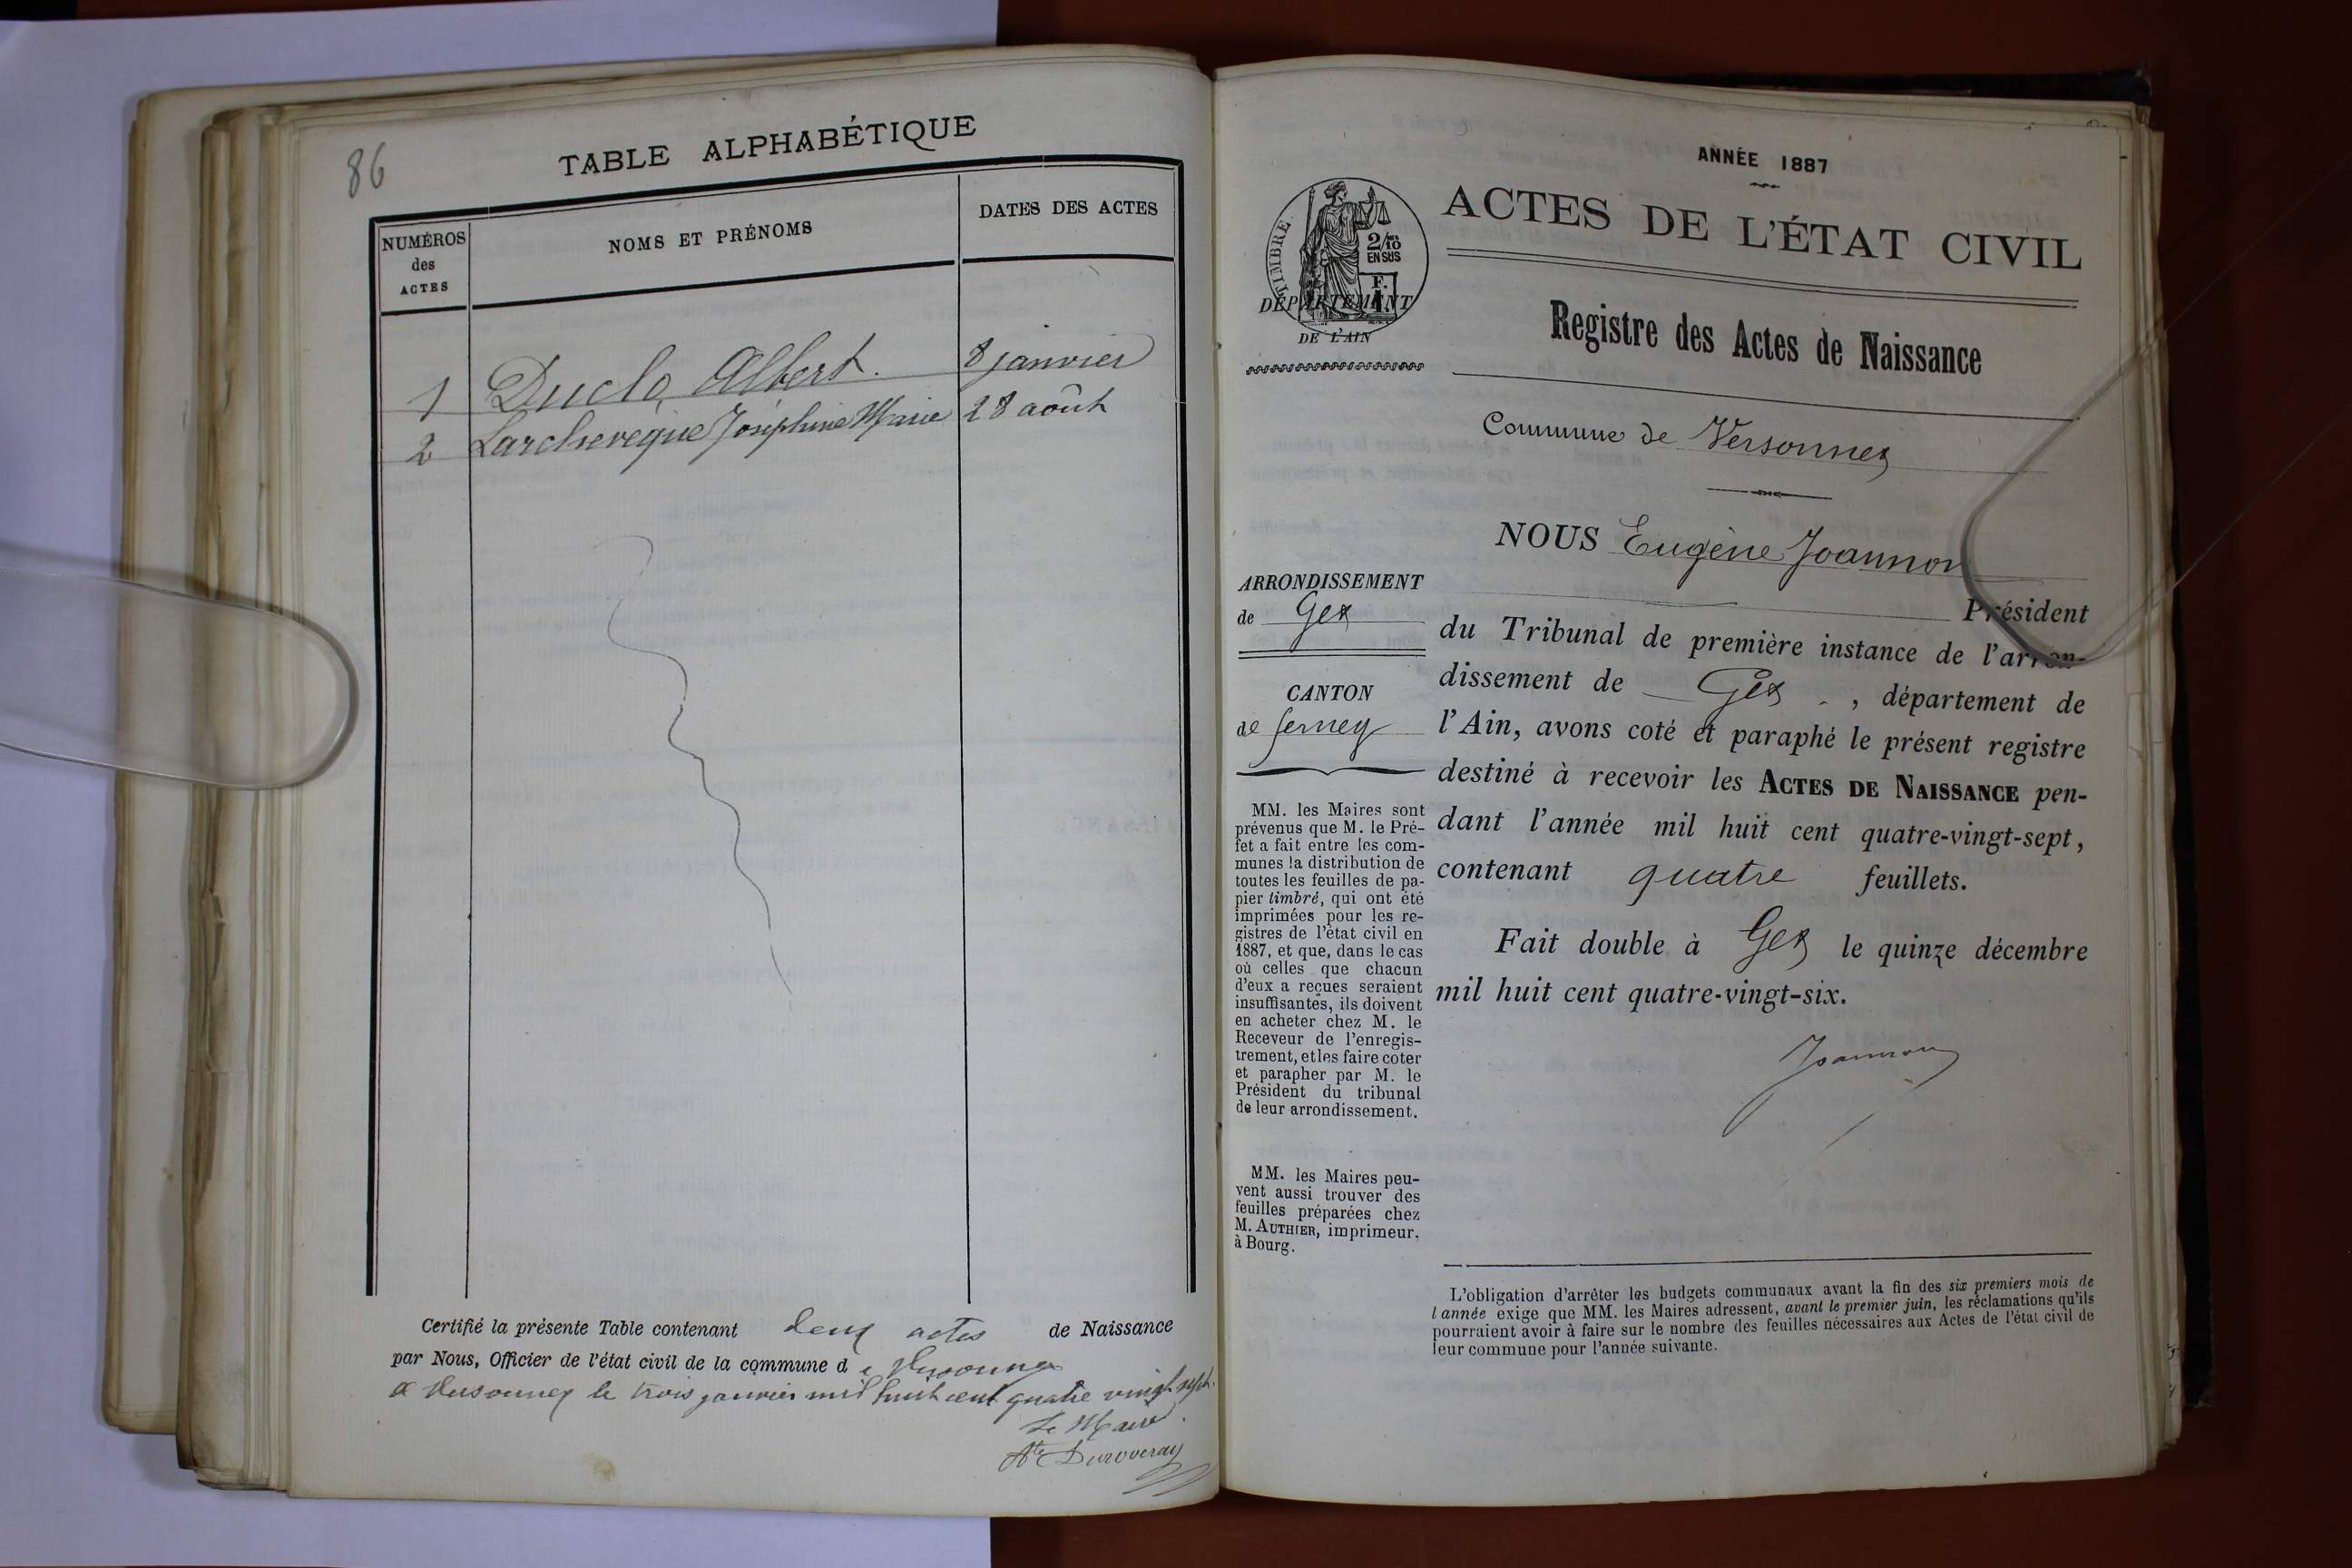 86
TABLE ALPHABÉTIQUE
NUMÉROS
des
ACTES
NOMS ET PRÉNOMS
DATES DES ACTES
1 Duclo Albert. 8 janvier
2 Larchevêque Joséphine Marie 28 août
Certifié la présente Table contenant deux actes de Naissance
par Nous, Officier de l'état civil de la commune de Versonnex
a Versonnex le trois janvier mil huit cent quatre vingt sept.
Le Maire.
Duroveray
ANNÉE 1887
ACTES DE L'ÉTAT CIVIL
TIMBRE
2/10
EN SUS
F.
1.
DÉPARTEMENT
DE L'AIN
Registre des Actes de Naissance
Commune de Versonnex
NOUS Eugène Joannon
Président
du Tribunal de première instance de l'arron-
dissement de Gex, département de
l'Ain, avons coté et paraphé le présent registre
destiné à recevoir les ACTES DE NAISSANCE pen-
dant l'année mil huit cent quatre-vingt-sept,
contenant quatre feuillets.
Fait double à Gex le quinze décembre
mil huit cent quatre-vingt-six.
Joannon
ARRONDISSEMENT
de Gex
CANTON
de Ferney
MM. les Maires sont
prévenus que M. le Pré-
fet a fait entre les com-
munes la distribution de
toutes les feuilles de pa-
pier timbré, qui ont été
imprimées pour les re-
gistres de l'état civil en
1887, et que, dans le cas
où celles que chacun
d'eux a reçues seraient
insuffisantes, ils doivent
en acheter chez M. le
Receveur de l'enregis-
trement, et les faire coter
et parapher par M. le
Président du tribunal
de leur arrondissement.
MM. les Maires peu-
vent aussi trouver des
feuilles préparées chez
M. AUTHIER, imprimeur,
à Bourg.
L'obligation d'arrêter les budgets communaux avant la fin des six premiers mois de
l'année exige que MM. les Maires adressent, avant le premier juin, les réclamations qu'ils
pourraient avoir à faire sur le nombre des feuilles nécessaires aux Actes de l'état civil de
leur commune pour l'année suivante.